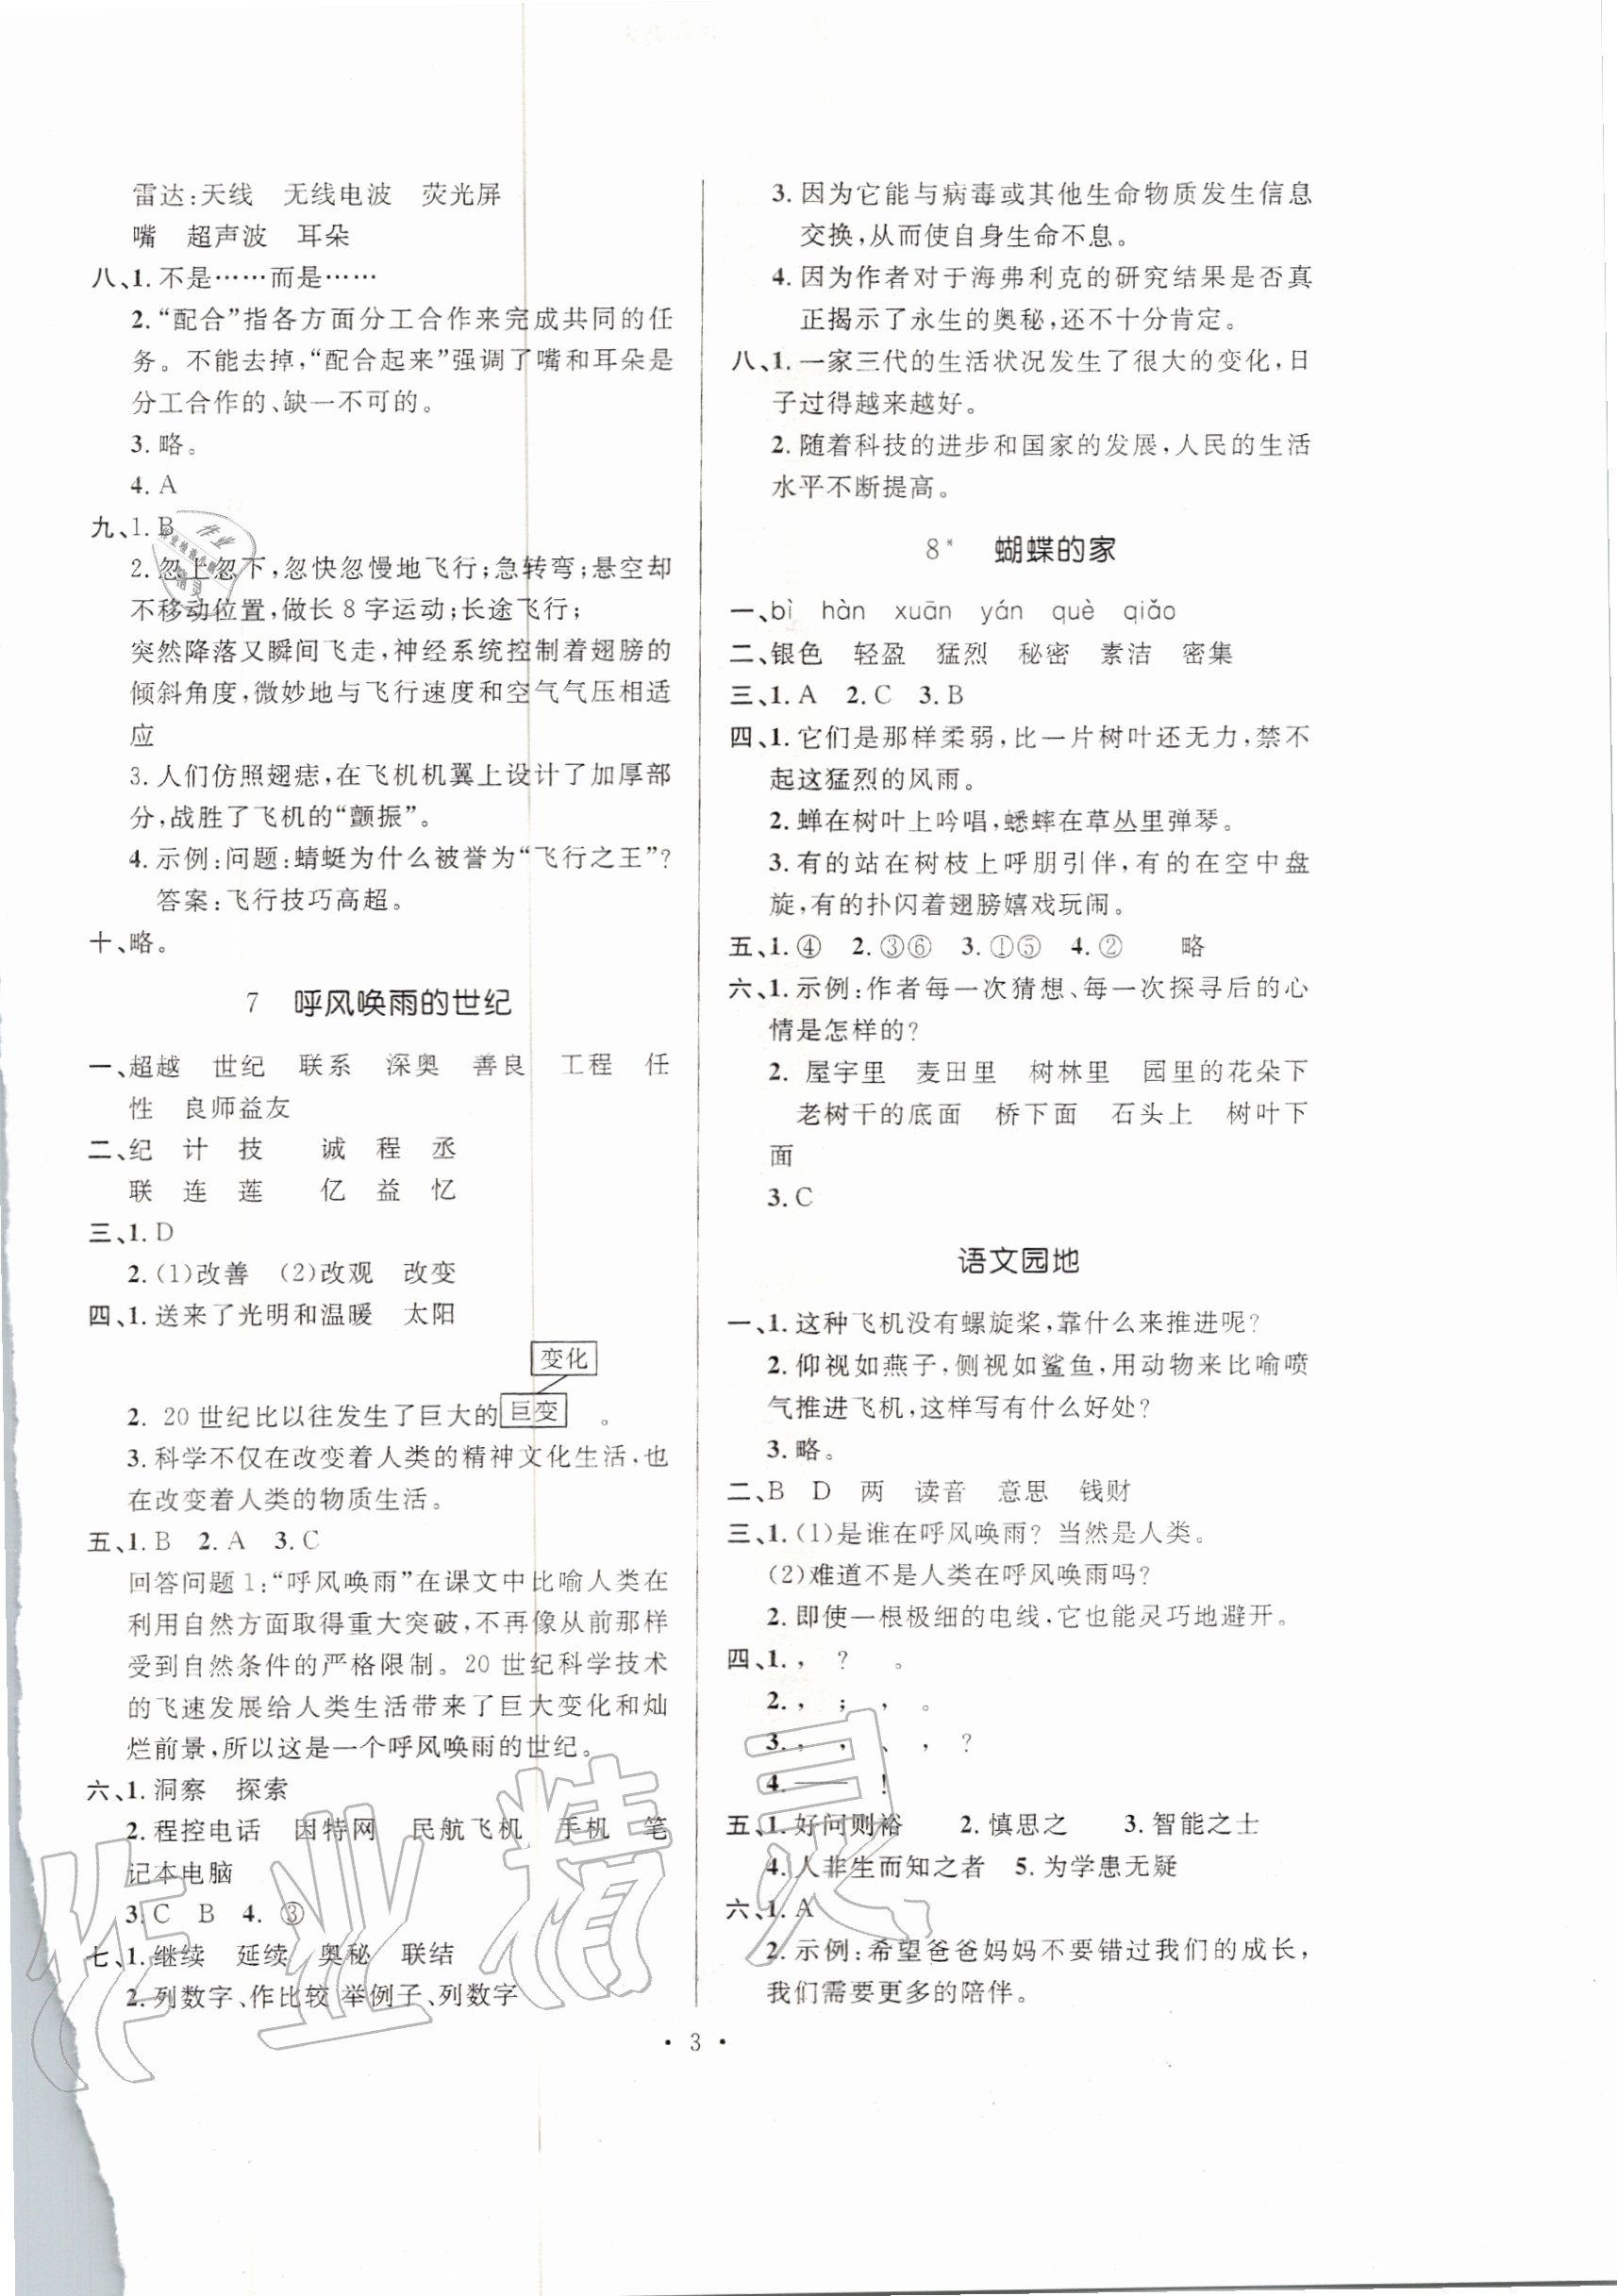 雷达:天线　无线电波　荧光屏
嘴　超声波　耳朵
八、1. 不是……而是……
2. “配合”指各方面分工合作来完成共同的任
务。不能去掉,“配合起来”强调了嘴和耳朵是
分工合作的、缺一不可的。
3. 略。
4. A
九、1. B
2. 忽上忽下,忽快忽慢地飞行;急转弯;悬空却
不移动位置,做长 8 字运动;长途飞行;
突然降落又瞬间飞走,神经系统控制着翅膀的
倾斜角度,微妙地与飞行速度和空气气压相适
应
3. 人们仿照翅痣,在飞机机翼上设计了加厚部
分,战胜了飞机的“颤振”。
4. 示例:问题:蜻蜓为什么被誉为“飞行之王”?
答案:飞行技巧高超。
十、略。
7　呼风唤雨的世纪
一、超越　世纪　联系　深奥　善良　工程　任
性　良师益友
二、纪　计　技　　诚　程　丞
联　连　莲　　亿　益　忆
三、1. D
2. (1)改善　(2)改观　改变
四、1. 送来了光明和温暖　太阳
变化
2. 20 世纪比以往发生了巨大的巨变。
3. 科学不仅在改变着人类的精神文化生活,也
在改变着人类的物质生活。
五、1. B　2. A　3. C
回答问题 1:“呼风唤雨”在课文中比喻人类在
利用自然方面取得重大突破,不再像从前那样
受到自然条件的严格限制。20 世纪科学技术
的飞速发展给人类生活带来了巨大变化和灿
烂前景,所以这是一个呼风唤雨的世纪。
六、1. 洞察　探索
2. 程控电话　因特网　民航飞机　手机　笔
记本电脑
3. C　B　4. ③
七、1. 继续　延续　奥秘　联结
2. 列数字、作比较 举例子、列数字
3. 因为它能与病毒或其他生命物质发生信息
交换,从而使自身生命不息。
4. 因为作者对于海弗利克的研究结果是否真
正揭示了永生的奥秘,还不十分肯定。
八、1. 一家三代的生活状况发生了很大的变化,日
子过得越来越好。
2. 随着科技的进步和国家的发展,人民的生活
水平不断提高。
8*　蝴蝶的家
一、bì　hàn　xuān　yán　què　qiǎo
二、银色　轻盈　猛烈　秘密　素洁　密集
三、1. A　2. C　3. B
四、1. 它们是那样柔弱,比一片树叶还无力,禁不
起这猛烈的风雨。
2. 蝉在树叶上吟唱,蟋蟀在草丛里弹琴。
3. 有的站在树枝上呼朋引伴,有的在空中盘
旋,有的扑闪着翅膀嬉戏玩闹。
五、1. ④　2. ③⑥　3. ①⑤　4. ②　　略
六、1. 示例:作者每一次猜想、每一次探寻后的心
情是怎样的?
2. 屋宇里　麦田里　树林里　园里的花朵下
老树干的底面　桥下面　石头上　树叶下
面
3. C
语文园地
一、1. 这种飞机没有螺旋桨,靠什么来推进呢?
2. 仰视如燕子,侧视如鲨鱼,用动物来比喻喷
气推进飞机,这样写有什么好处?
3. 略。
二、B　D　两　读音　意思　钱财
三、1. (1)是谁在呼风唤雨? 当然是人类。
(2)难道不是人类在呼风唤雨吗?
2. 即使一根极细的电线,它也能灵巧地避开。
四、1. ,　?　。
2. ,　;　,　。
3. ,　,　、　,　?
4. ——　!
五、1. 好问则裕　　2. 慎思之　　3. 智能之士
4. 人非生而知之者　5. 为学患无疑
六、1. A
2. 示例:希望爸爸妈妈不要错过我们的成长,
我们需要更多的陪伴。
• 3 •
作业精灵